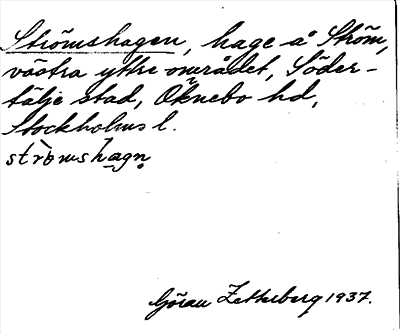 Strömshagen, hage å Ström,
västra yttre området, Söder-
tälje stad, Öknebo hd,
Stockholms l.
strömshagn
Göran Zetterberg 1937.